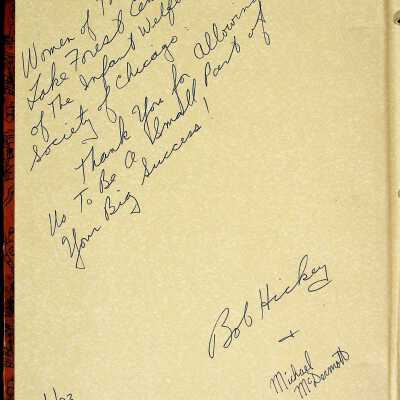 Women of Th
Lake Forest Cen
of The Infant Welf
Society of Chicago.
Thank You for Allowing
Us To Be A Small Part of
Your Big Success!
Bob Hickey
+
Michael
McDermott